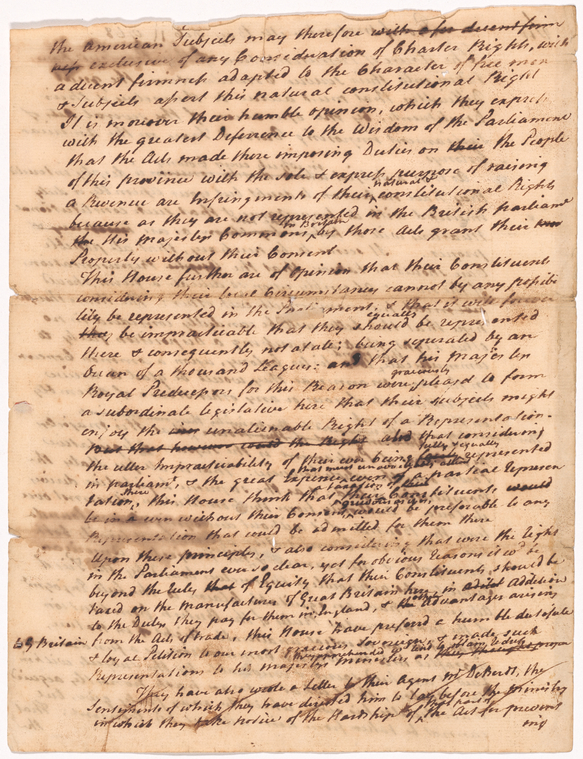 the American Subjects may therefore with a decent firm
ness exclusive of any Consideration of Charter Rights, with
a decent firmness adapted to the Character of free men
& Subjects assert this natural constitutional Right
It is moreover their humble opinion, which they express
with the greatest Deference to the Wisdom of the Parliament
that the Acts made there imposing Duties on their the People
of this province with the sole & express purpose of raising
a Revenue are Infringments of their natural & constitutional Rights
because as they are not represented in the British Parliamt
the His Majestys Commons in Britain by those Acts grant their
Property without their Consent
This House further are of opinion that their Constituents
considering their local Circumstances cannot by any possibi
lity be represented in the Parliament, & that it will forever
be impracticable that they should be equally represented
there & consequently not at all; being seperated by an
Ocean of a thousand leagues: and that his Majestys
Royal Predecessors for this Reason were graciously pleasd to form
a subordinate legislative here that their subjects might
enjoy the unalienable Right of a Representation.
also that considering
the utter Impracticability of their ever being fully & equally represented
in parliamt, & the great Expence that must unavoidably attend even a partial represen
tation there, this House think that a taxation of their Constituents
even without their Consent, grievous as it is, would be preferable to any
Representation that could be admitted for them there
Upon these principles, & also considering that were the right
in the Parliament ever so clear, yet for obvious Reasons it wd be
beyond the rules of Equity that their Constituents should be
taxed on the manufactures of Great Britain here in Addition
to the Dutys they pay for them in England, & other Advantages arising
to G Britain from the Acts of trade, this House have preferd a humble dutifull
& loyal Petition to our most gracious Sovereign, & made such
Representations to his majestys ministers as they apprehended wd tend to
They have also wrote a Letter to their Agent Mr DeBerdt, the
Sentiments of which they have directed him to lay before the ministry
in which they take notice of the Hardship of the Act for prevent
ing